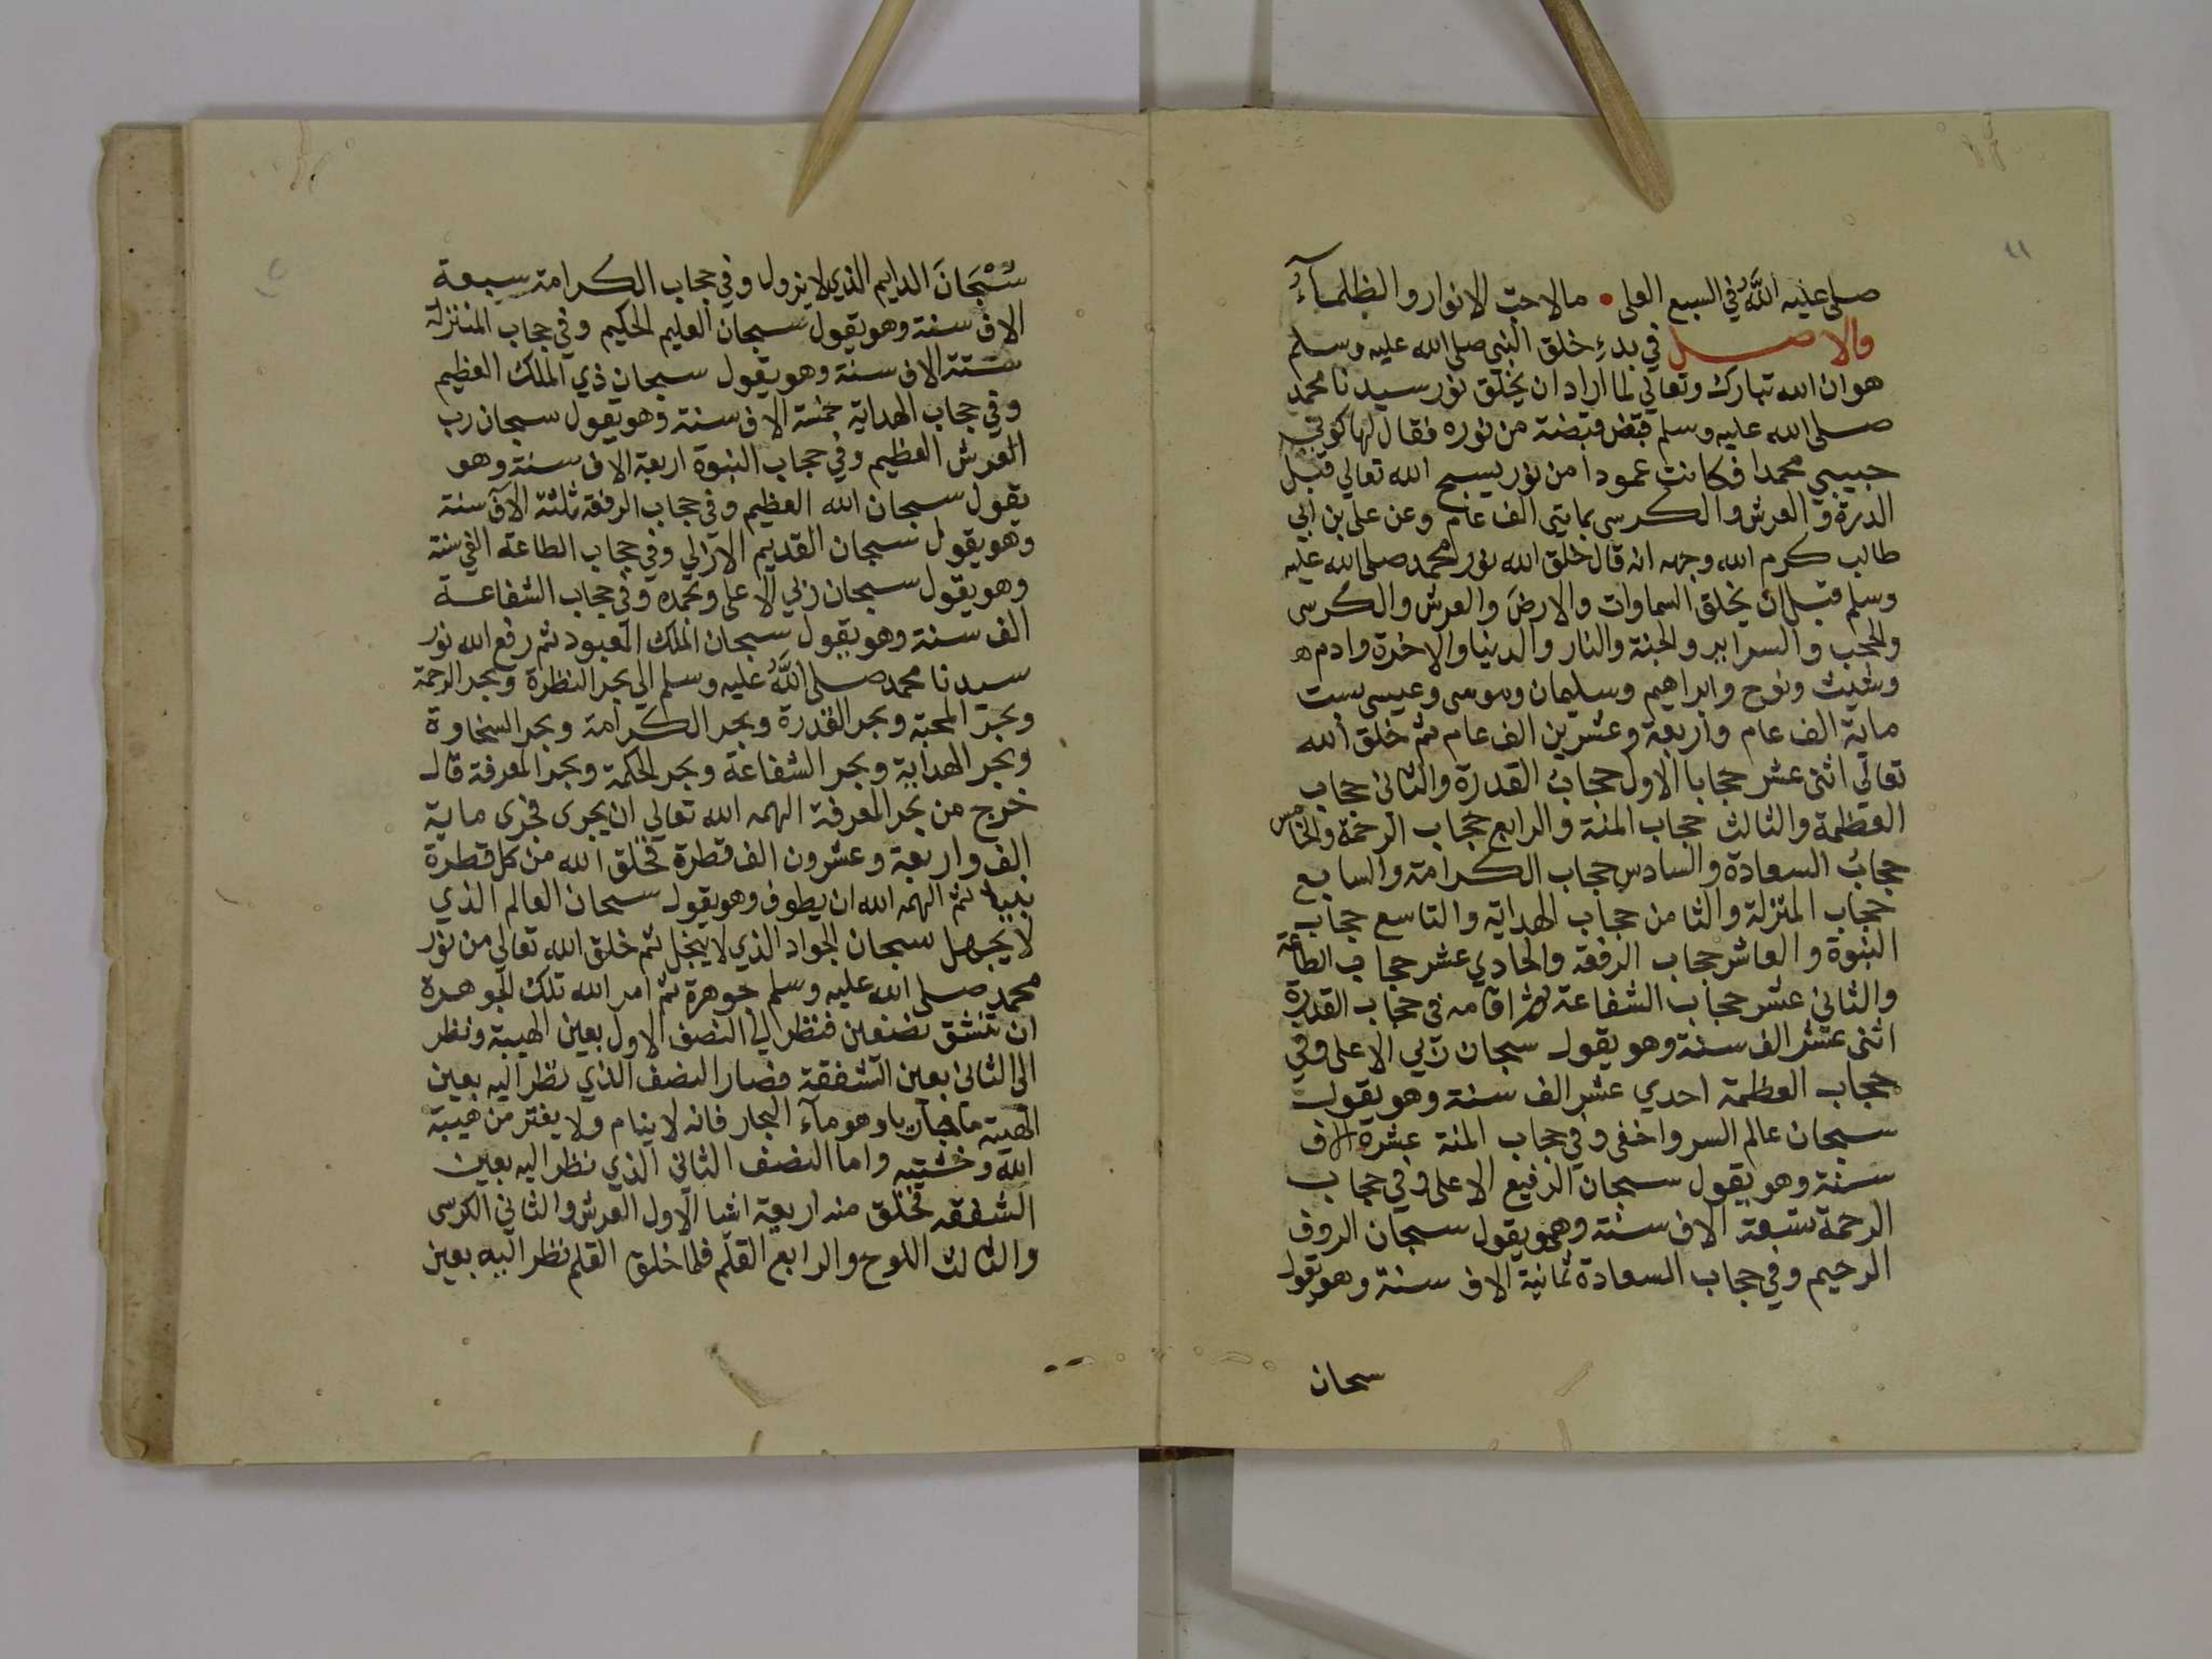 صلى عليه اللَّهُ في السبع العلى • مالاحت الانوار والظلمآءُ
والاصل في بدءِ خلق النبي صلى الله عليه وسلم
هوان الله تبارك وتعالي لما اراد ان يخلق نور سيدنا محمد
صلى الله عليه وسلم قبض قبضة من نوره فقال لها كوني
حبيبي محمدا فكانت عمودا من نور يسبح الله تعالي قبل
الدرة و العرش والكرسى بمايتى الف عام وعن على بن ابي
طالب كرم الله وجهه انه قال خلق الله نور محمد صلى الله عليه
وسلم قبل ان يخلق السماوات والارض والعرش والكرسى
والحجب والسرابر والجنة والنار والدنيا والاخرة وادم
وشيث ونوح وابراهيم وسليمان وموسى وعيسى بست
ماية الف عام واربعة وعشرين الف عام ثم خلق الله
تعالي اثنى عشر حجابا الاول حجابُ القدرة والثانى حجاب
العظمة والثالث حجاب المنة والرابع حجاب الرحمة والخامس
حجابُ السعادة والسادس حجاب الكرامة والسابع
حجاب المنزلة والثامن حجاب الهداية والتاسع حجاب
النبوة والعاشر حجاب الرفقة والحادي عشر حجاب الطاعة
والثاني عشر حجاب الشفاعة ثم اقامه في حجاب القدرة
اثنى عشر الف سنة وهو يقول سبحان ربي الاعلى وفي
حجاب العظمة احدي عشر الف سنة وهو يقول
سبحان عالم السر واخفى وفي حجاب المنة عشرة الاف
سنة وهو يقول سبحان الرفيع الاعلى وفي حجاب
الرحمة تسعة الاف سنة وهو يقول سبحان الروف
الرحيم وفي حجاب السعادة ثمانية الاف سنة وهو يقول
سبحان
سُبْحَانَ الدايم الذي لا يزول وفي حجاب الكرامة سبعة
الاف سنة وهو يقول سبحان العليم الحكيم وفي حجاب المنزلة
ستة الاف سنة وهو يقول سبحان ذي الملك العظيم
وفي حجاب الهداية خمسة الاف سنة وهو يقول سبحان رب
العرش العظيم وفي حجاب النبوة اربعة الاف سنة وهو
يقول سبحان الله العظيم وفي حجاب الرفقة ثلثة الآف سنة
وهو يقول سبحان القديم الازلي وفي حجاب الطاعة الفي سنة
وهو يقول سبحان ربي الاعلى وبحمده وفي حجاب الشفاعة
الف سنة وهو يقول سبحان الملك المعبود ثم رفع الله نور
سيدنا محمد صلى اللَّهُ عليه وسلم الي بحر النظرة وبحر الرحمة
وبحر المحبة وبحر القدرة وبحر الكرامة وبحر السخاوة
وبحر الهداية وبحر الشفاعة وبحر الحكمة وبحر المعرفة قال
خرج من بحر المعرفة الهمه الله تعالي ان يجرى فجرى ماية
الف واربعة وعشرون الف قطرة فخلق الله من كل قطرة
نبيا ثم الهمه الله ان يطوف وهو يقول سبحان العالم الذي
لا يجهل سبحان الجواد الذي لا يبخل ثم خلق الله تعالي من نور
محمد صلى الله عليه وسلم جوهرة ثم امر الله تلك الجوهرة
ان تنشق نصفين فنظر الي النصف الاول بعين الهيبة ونظر
الى الثانى بعين الشفقة فصار النصف الذي نظر اليه بعين
الهيبة ما وهو مآء البحار فانه لا ينام ولا يفتر من هيبة
الله وخشيته واما النصف الثاني الذي نظر اليه بعين
الشفقه فخلق منه اربعة اشيا الاول العرش والثاني الكرسى
والثالث اللوح والرابع القلم فلما خلق القلم نظر اليه بعين